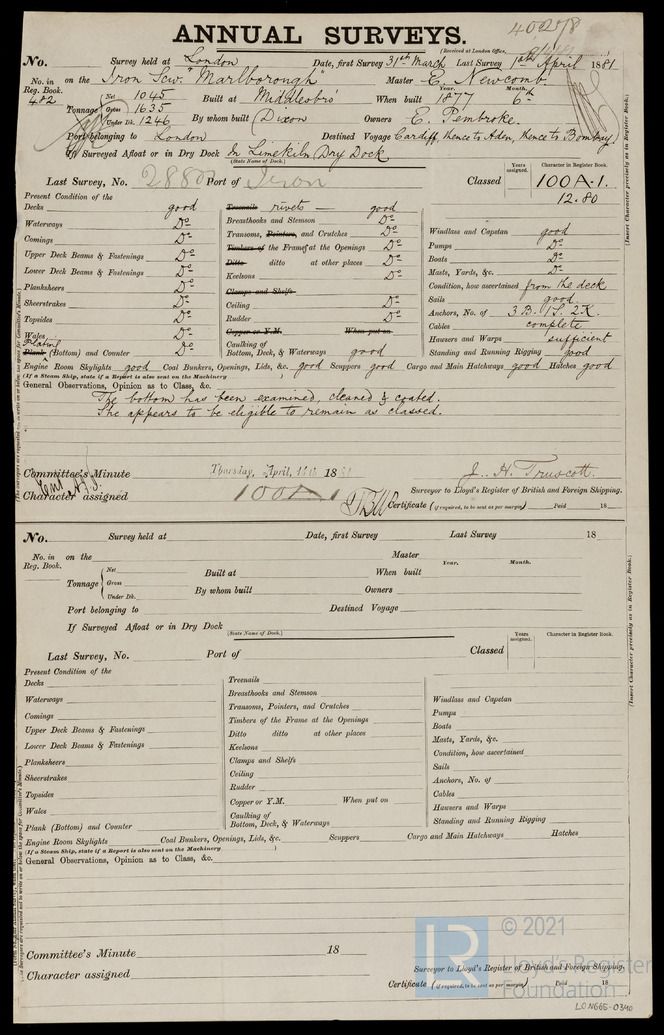 40258
ANNUAL SURVEYS.
(Received at London Office,
No. Survey held at London Date, first Survey 31st March Last Survey 1st April 1881
No. in Reg. Book. 482 on the Iron Scw. "Marlborough" Master E. Newcomb.
Tonnage Net 1045 Gross 1635 Under Dk. 1246 Built at Middlesbro' When built Year. 1877 Month. 6th
By whom built Dixon Owners E. Pembroke.
Port belonging to London Destined Voyage Cardiff, thence to Aden, thence to Bombay
If Surveyed Afloat or in Dry Dock In Limekiln Dry Dock
(State Name of Dock.)
Last Survey, No. Port of Iron Classed Years assigned. Character in Register Book. 100 A.1.
12.80
(Insert Character precisely as in Register Book.)
Present Condition of the
Decks good
Waterways Do
Comings Do
Upper Deck Beams & Fastenings Do
Lower Deck Beams & Fastenings Do
Planksheers Do
Sheerstrakes Do
Topsides Do
Wales Do
Plating
Plank (Bottom) and Counter Do
Treenails rivets good
Breasthooks and Stemson Do
Transoms, Pointers, and Crutches Do
Timbers of the Frame at the Openings Do
Ditto ditto at other places Do
Keelsons Do
Clamps and Shelfs
Ceiling Do
Rudder Do
Copper or Y.M. When put on
Caulking of
Bottom, Deck, & Waterways good
Windlass and Capstan good
Pumps Do
Boats Do
Masts, Yards, &c. Do
Condition, how ascertained from the deck
Sails good
Anchors, No. of 3 B. 1 S. 2 K.
Cables complete
Hawsers and Warps sufficient
Standing and Running Rigging good
Engine Room Skylights good Coal Bunkers, Openings, Lids, &c. good Scuppers good Cargo and Main Hatchways good Hatches good
(If a Steam Ship, state if a Report is also sent on the Machinery )
General Observations, Opinion as to Class, &c.
The bottom has been examined, cleaned & coated.
She appears to be eligible to remain as classed.
Committee's Minute Thursday, April, 18 81
J. H. Truscott.
Character assigned 100A1
Surveyor to Lloyd's Register of British and Foreign Shipping.
Certificate (if required, to be sent as per margin) Paid 18
No. Survey held at Date, first Survey Last Survey 18
No. in Reg. Book. on the Master
Tonnage Net Gross Under Dk. Built at When built Year. Month.
By whom built Owners
Port belonging to Destined Voyage
If Surveyed Afloat or in Dry Dock
(State Name of Dock.)
Last Survey, No. Port of Classed Years assigned. Character in Register Book.
(Insert Character precisely as in Register Book.)
Present Condition of the
Decks
Waterways
Comings
Upper Deck Beams & Fastenings
Lower Deck Beams & Fastenings
Planksheers
Sheerstrakes
Topsides
Wales
Plank (Bottom) and Counter
Treenails
Breasthooks and Stemson
Transoms, Pointers, and Crutches
Timbers of the Frame at the Openings
Ditto ditto at other places
Keelsons
Clamps and Shelfs
Ceiling
Rudder
Copper or Y.M. When put on
Caulking of
Bottom, Deck, & Waterways
Windlass and Capstan
Pumps
Boats
Masts, Yards, &c.
Condition, how ascertained
Sails
Anchors, No. of
Cables
Hawsers and Warps
Standing and Running Rigging
Engine Room Skylights Coal Bunkers, Openings, Lids, &c. Scuppers Cargo and Main Hatchways Hatches
(If a Steam Ship, state if a Report is also sent on the Machinery )
General Observations, Opinion as to Class, &c.
Committee's Minute 18
Character assigned
Surveyor to Lloyd's Register of British and Foreign Shipping.
Certificate (if required, to be sent as per margin) Paid 18
LR © 2021
Lloyd's Register
Foundation
LON665-0340